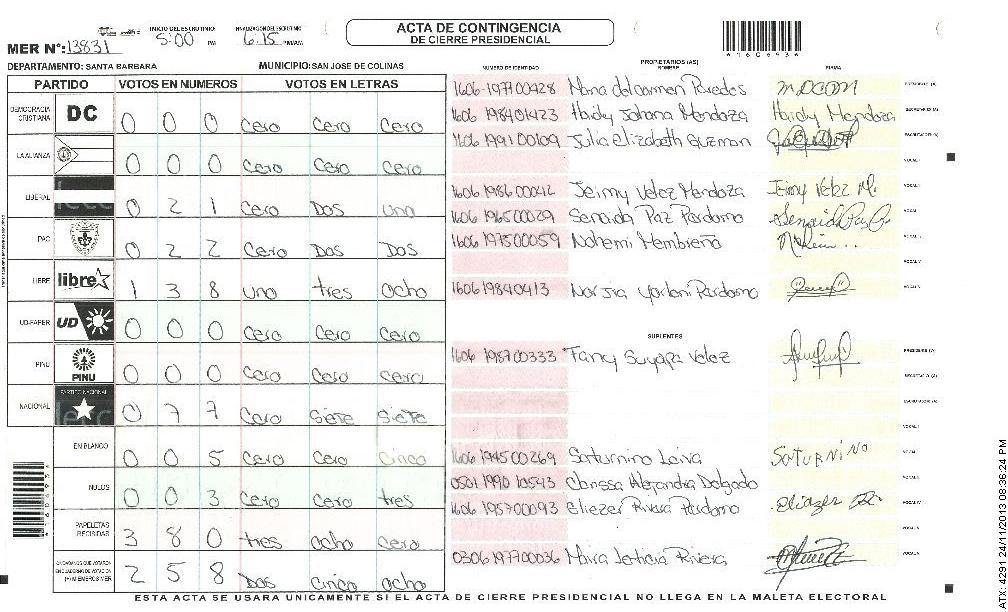 ACTA DE CONTINGENCIA
DE CIERRE PRESIDENCIAL
INICIO DEL ESCRUTINIO
5:00 PM
FINALIZACION DEL ESCRUTINIO
6:15 PM/AM
MER N°: 13831
1606936
DEPARTAMENTO: SANTA BARBARA
MUNICIPIO: SAN JOSE DE COLINAS
PARTIDO VOTOS EN NUMEROS VOTOS EN LETRAS
DEMOCRACIA CRISTIANA DC 0 0 0 Cero Cero Cero
LA ALIANZA 0 0 0 Cero Cero Cero
LIBERAL 0 2 1 Cero Dos uno
PAC 0 2 2 Cero Dos Dos
LIBRE libre 1 3 8 uno tres ocho
UD-FAPER UD 0 0 0 Cero Cero Cero
PINU PINU 0 0 0 Cero Cero Cero
NACIONAL PARTIDO NACIONAL 0 7 7 Cero Siete Siete
EN BLANCO 0 0 5 Cero Cero Cinco
NULOS 0 0 3 Cero Cero tres
PAPELETAS RECIBIDAS 3 8 0 tres ocho Cero
CIUDADANOS QUE VOTARON EN CUADERNO DE VOTACION (+) MIEMBROS MER 2 5 8 Dos Cinco ocho
PROPIETARIOS (AS)
NUMERO DE IDENTIDAD NOMBRE FIRMA
1606-197100428 Maria del carmen Paredes MDCOM PRESIDENTE (A)
1606 198401423 Haidy Johana Mendoza Haidy Mendoza SECRETARIO (A)
1606 199100109 Julia elizabeth Guzman ESCRUTADOR (A)
VOCAL I
1606 1986 00042 Jeimy Velez Mendoza Jeimy Velez M.
1606 196500029 Senaida Paz Perdomo
1606 197500059 Nohemi Membreño
VOCAL V
1606 19840413
SUPLENTES
1606 198700333 Fany Suyapa Velez PRESIDENTE (A)
SECRETARIO (A)
ESCRUTADOR (A)
VOCAL I
1606 194500269 Saturnino Leiva SATURNINO
0501 1990 10543 Clarissa Alejandra Delgado
1606 195700093 Eliezer Rivera Perdomo
0306 197700036 Maria Leticia Rivera
ESTA ACTA SE USARA UNICAMENTE SI EL ACTA DE CIERRE PRESIDENCIAL NO LLEGA EN LA MALETA ELECTORAL
ATX 4291 24/11/2013 08:36:24 PM